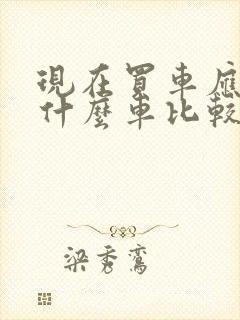 現在買車應
什麼車比較
梁秀鸞